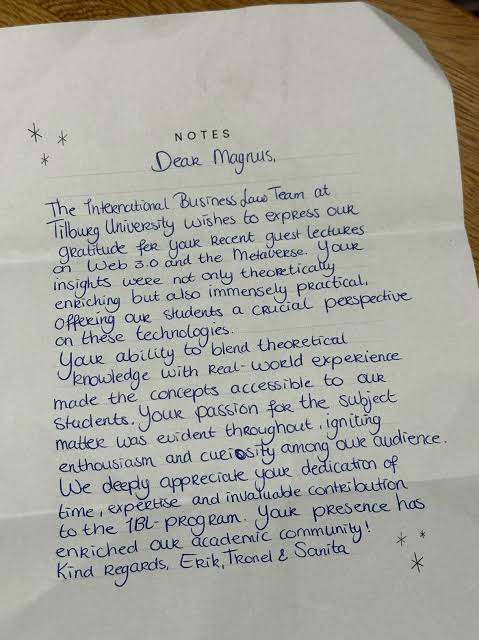 NOTES
Dear Magnus,
The International Business Law Team at
Tilburg University wishes to express our
gratitude for your recent guest lectures
on Web 3.0 and the Metaverse. Your
insights were not only theoretically
enriching but also immensely practical,
offering our students a crucial perspective
on these technologies.
Your ability to blend theoretical
knowledge with real-world experience
made the concepts accessible to our
students. Your passion for the subject
matter was evident throughout, igniting
enthousiasm and curiosity among our audience.
We deeply appreciate your dedication of
time, expertise and invaluable contribution
to the IBL-program. Your presence has
enriched our academic community!
Kind regards, Erik, Tronel & Sanita